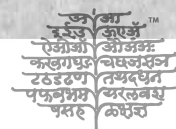 अ आ ™
इ ई उ ऊ ए
कखगघङ चछजझञ
टठडढण तथदधन
पफबभम यरलवश
षसह ळक्षज्ञ